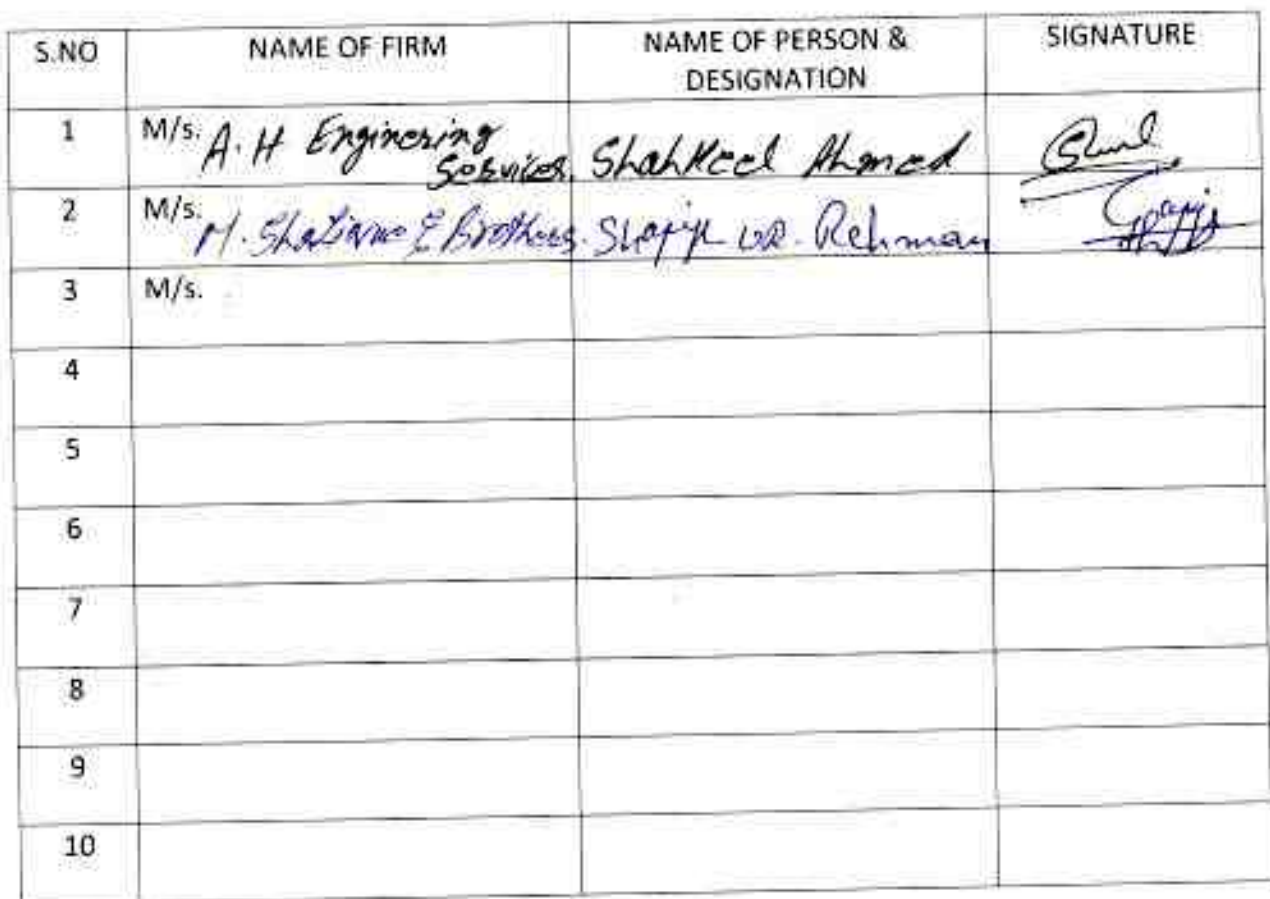 S.NO NAME OF FIRM NAME OF PERSON & SIGNATURE
DESIGNATION
1 M/s. A.H Enginering
Services. Shahkeel Ahmed
2 M/s. M. & Brothers. ur. Rehman
3 M/s.
4
5
6
7
8
9
10